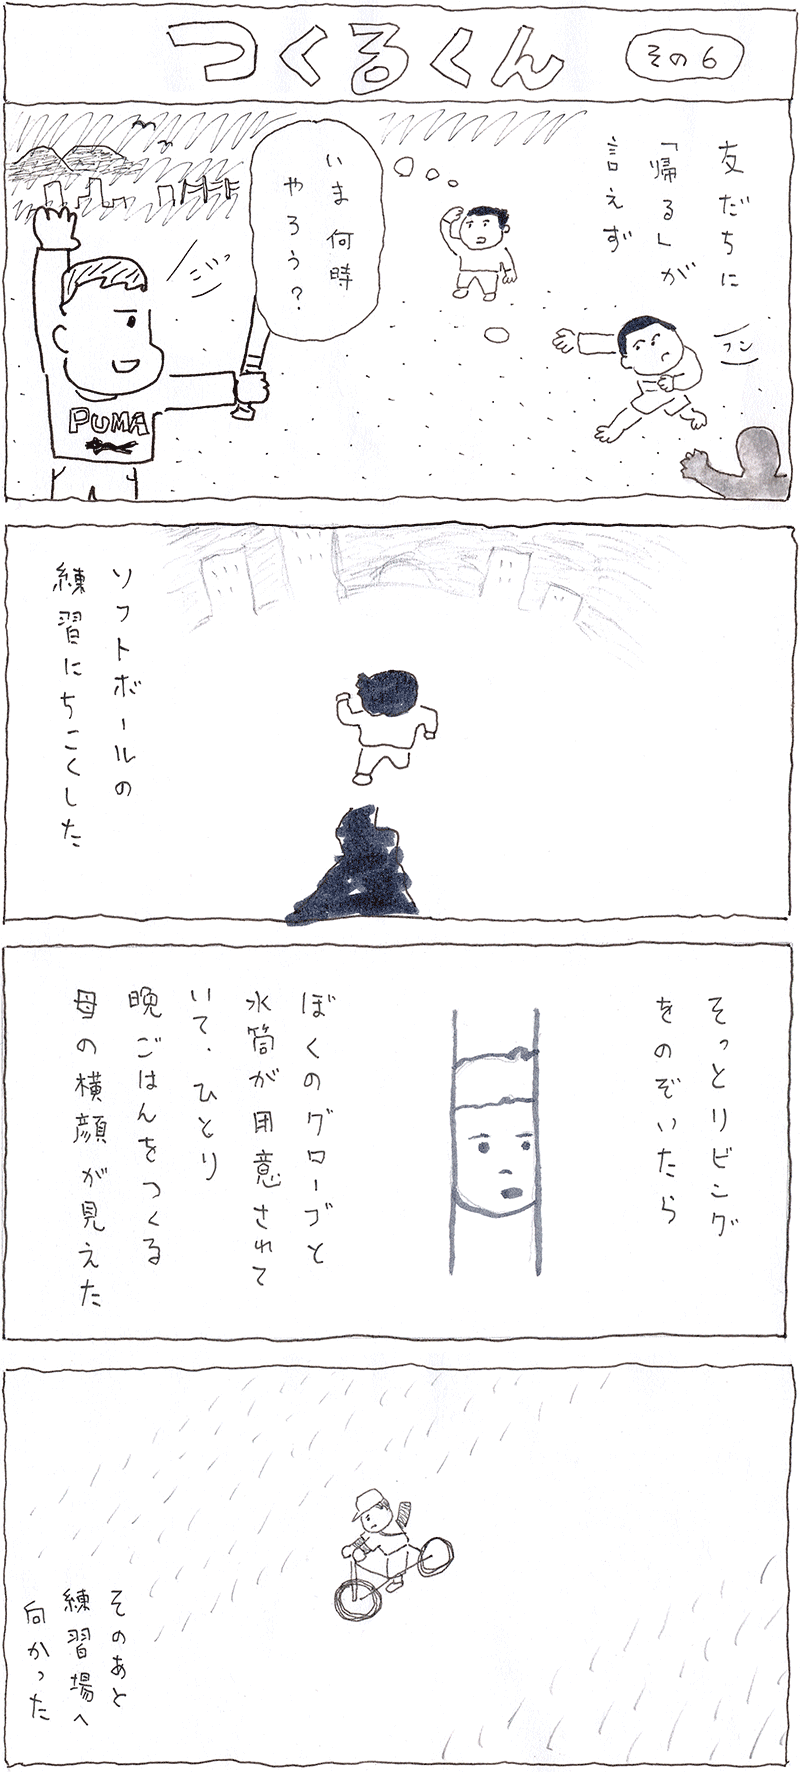 つくるくん
その6
友だちに
「帰る」が
言えず
いま何時
やろう?
フン
ジッ
PUMA
ソフトボールの
練習にちこくした
そっとリビング
をのぞいたら
ぼくのグローブと
水筒が用意されて
いて、ひとり
晩ごはんをつくる
母の横顔が見えた
そのあと
練習場へ
向かった